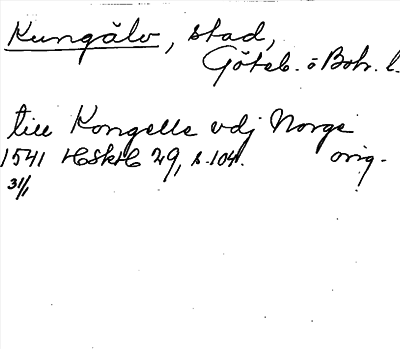 Kungälv, stad,
Göteb. o Boh. l.
till Kongelle vdj Norge
1541 HSkH 29, s. 104. orig.
31/1